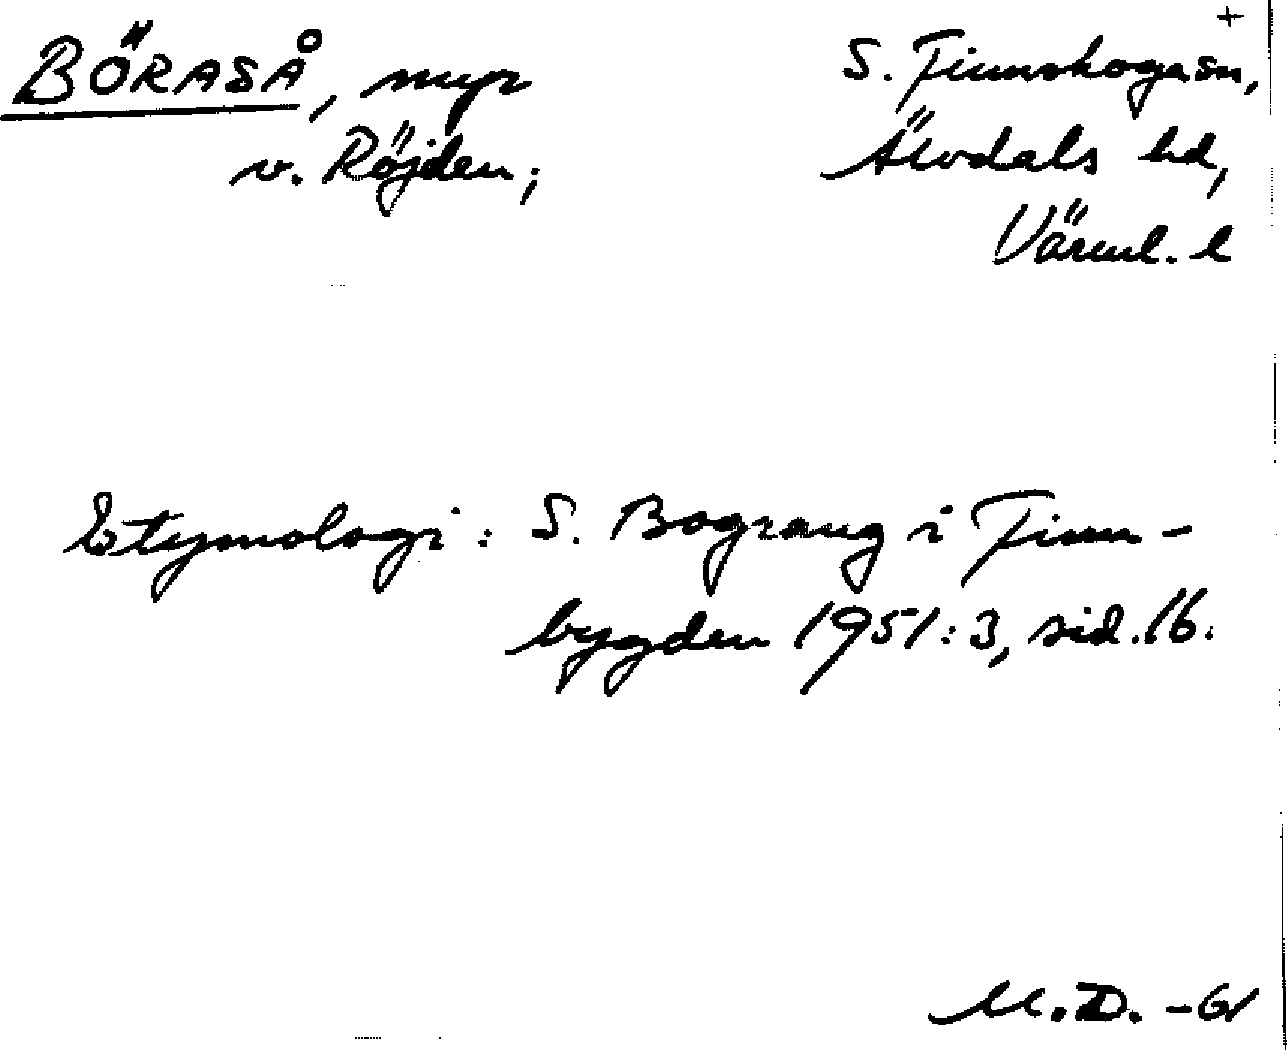 +
BÖRASÅ, myr
S. Finnskoga sn,
v. Röjden;
Älvdals hd,
Värml. l
Etymologi: S. Bograng i Finn-
bygden 1951:3, sid. 16.
M.D. -61